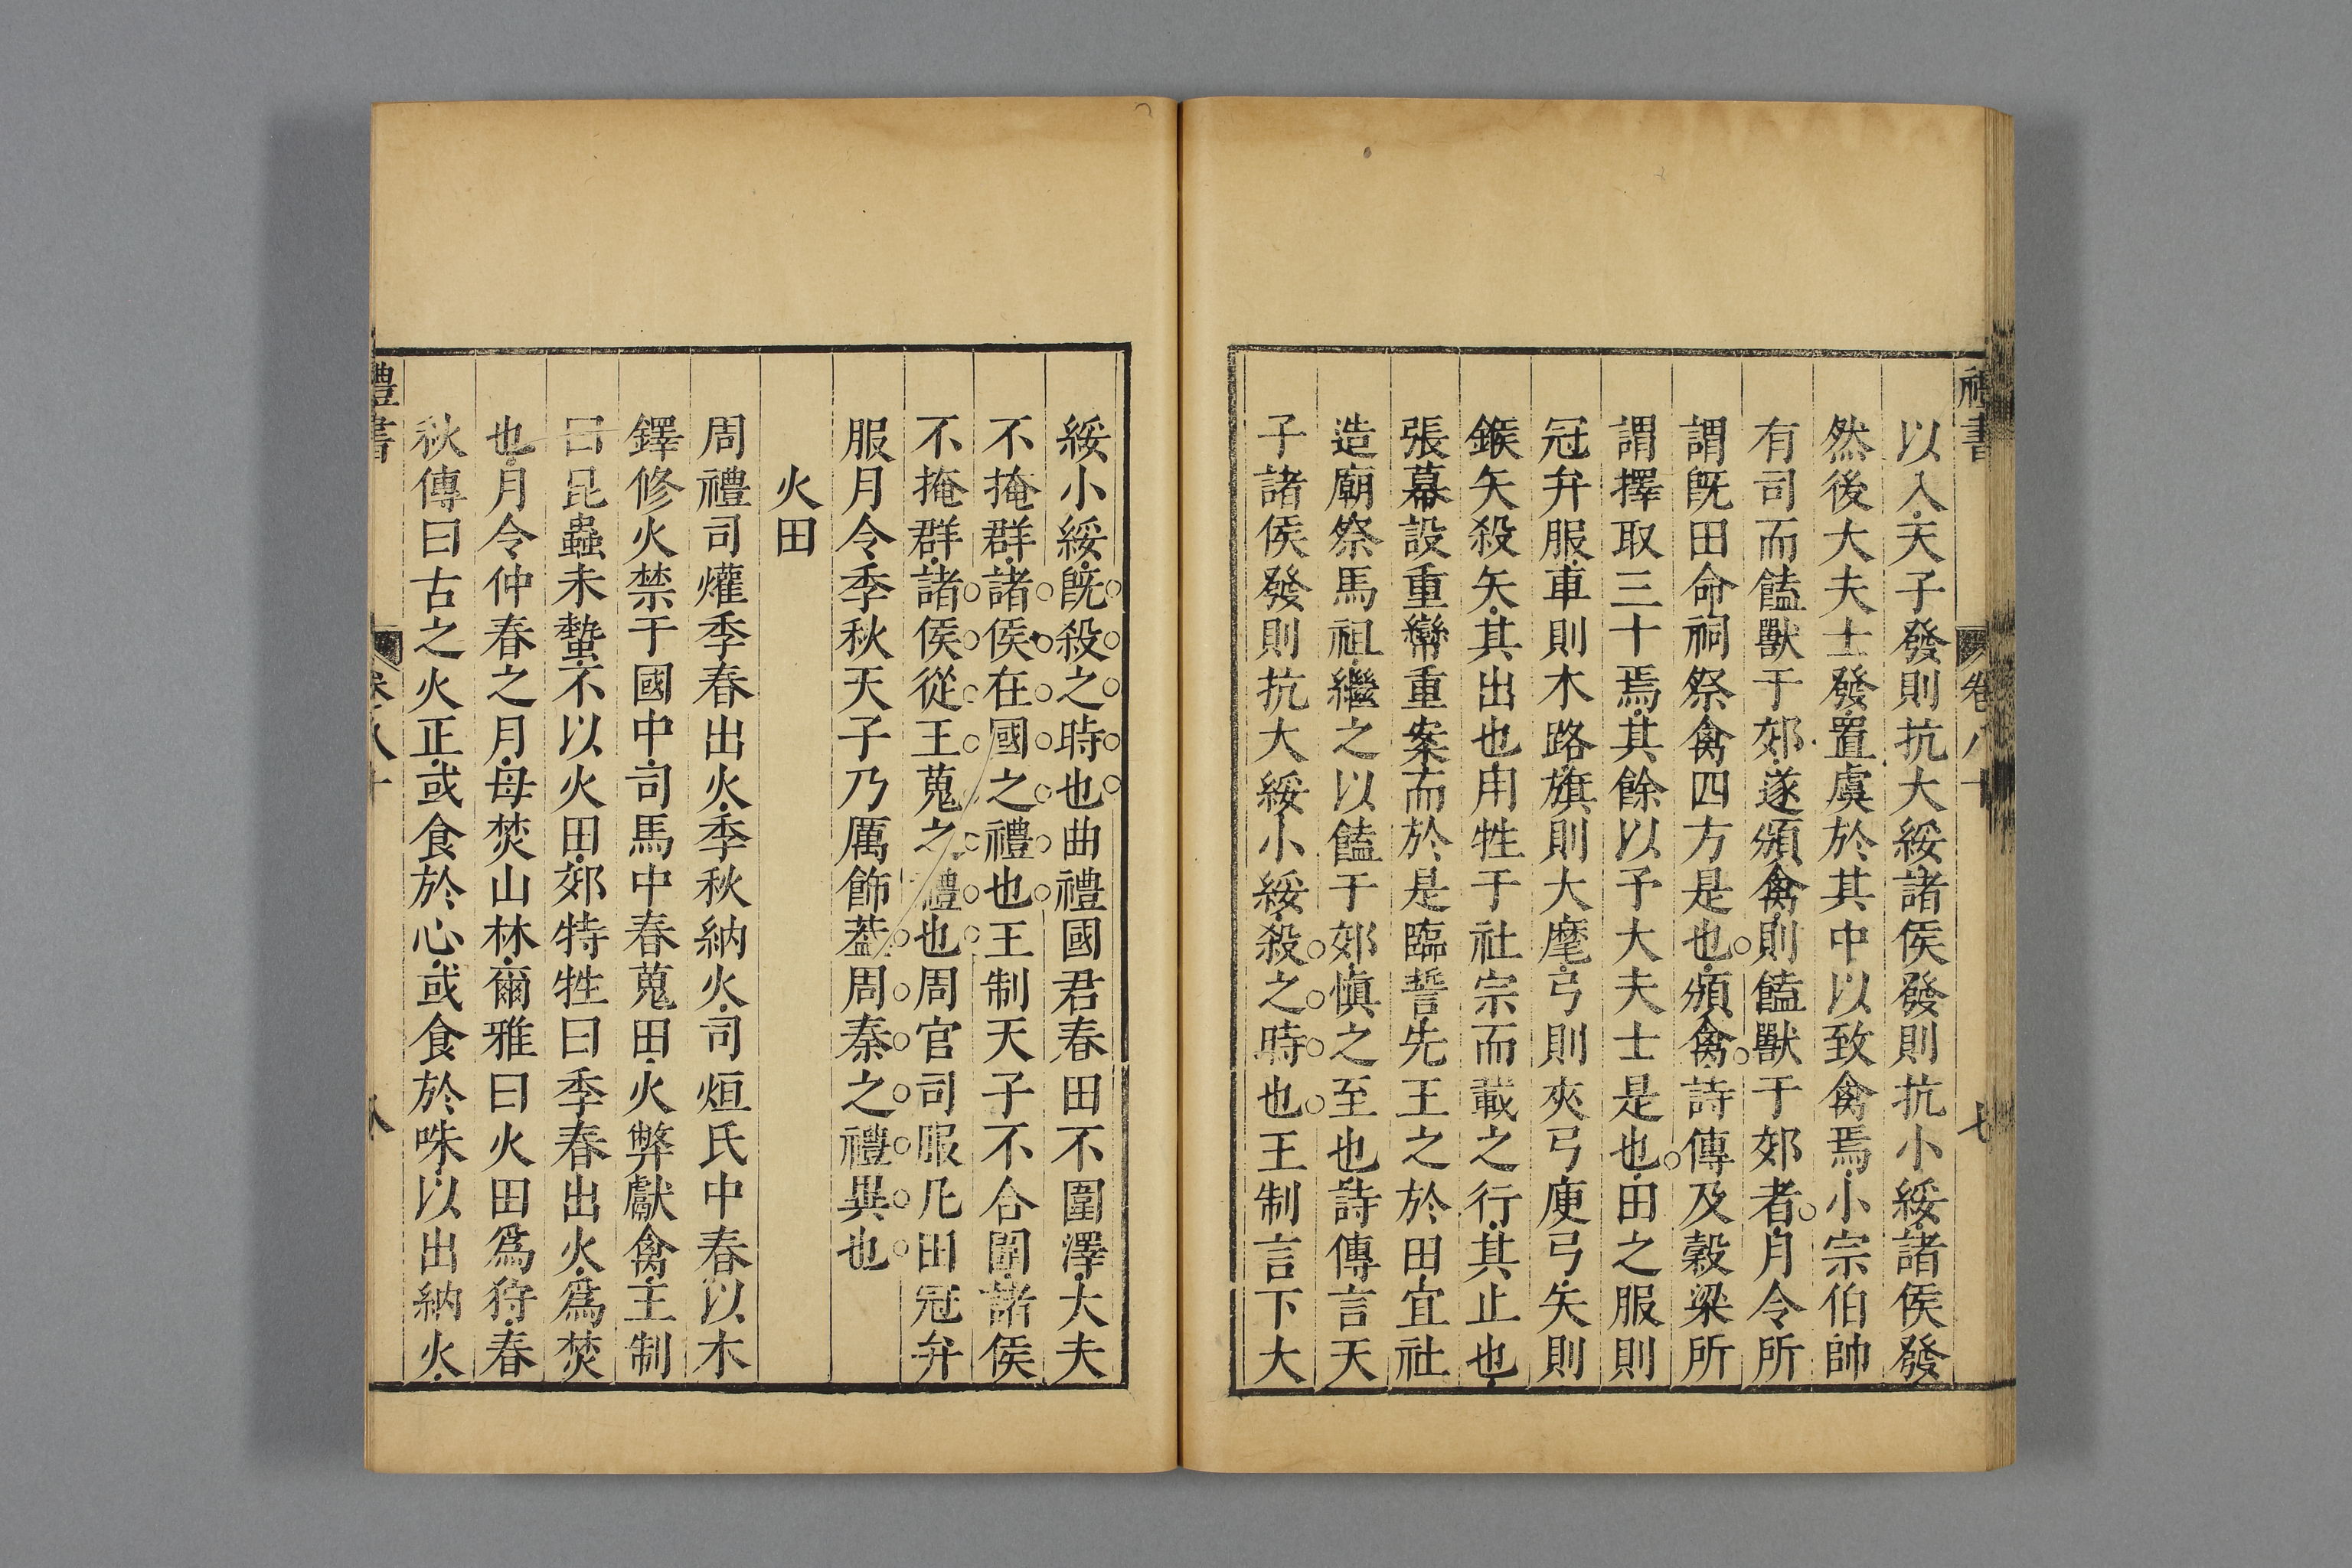 禮書
卷八十
七
以入天子發則抗大綏諸侯發則抗小綏諸侯發
然後大夫士發置虞於其中以致禽焉小宗伯帥
有司而饁獸于郊遂頒禽則饁獸于郊者月令所
謂旣田命祠祭禽四方是也頒禽詩傳及穀梁所
謂擇取三十焉其餘以予大夫士是也田之服則
冠弁服車則木路旗則大麾弓則夾弓庾弓矢則
鍭矢殺矢其出也用牲于社宗而載之行其止也
張幕設重帟重案而於是臨誓先王之於田宜社
造廟祭馬祖繼之以饁于郊愼之至也詩傳言天
子諸侯發則抗大綏小綏殺之時也王制言下大
綏小綏旣殺之時也曲禮國君春田不圍澤大夫
不掩群諸侯在國之禮也王制天子不合圍諸侯
不掩群諸侯從王蒐之禮也周官司服凡田冠弁
服月令季秋天子乃厲飾葢周秦之禮異也
火田
周禮司爟季春出火季秋納火司烜氏中春以木
鐸修火禁于國中司馬中春蒐田火弊獻禽王制
曰昆蟲未蟄不以火田郊特牲曰季春出火爲焚
也月令仲春之月毋焚山林爾雅曰火田爲狩春
秋傳曰古之火正或食於心或食於咮以出納火
禮書
卷八十
八